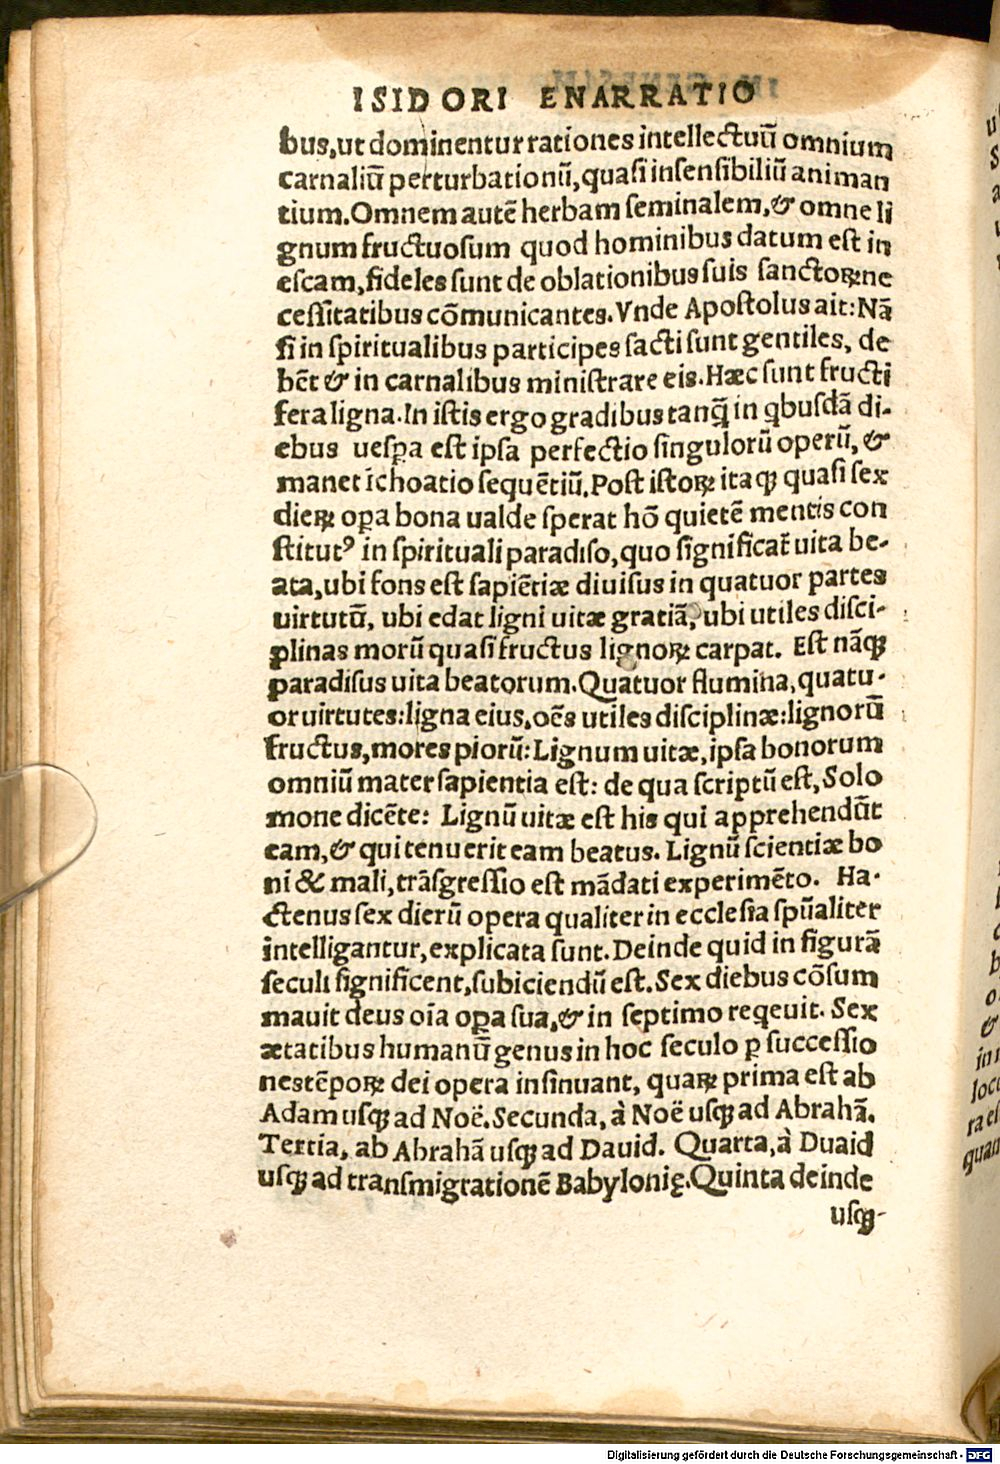 ISIDORI ENARRATIO
bus, ut dominentur rationes intellectuū omnium
carnaliū perturbationū, quasi insensibiliū animan
tium. Omnem autē herbam seminalem, & omne li
gnum fructuosum quod hominibus datum est in
escam, fideles sunt de oblationibus suis sanctoꝝ ne
cessitatibus cōmunicantes. Vnde Apostolus ait: Nā
si in spiritualibus participes facti sunt gentiles, de
bēt & in carnalibus ministrare eis. Hæc sunt fructi
fera ligna. In istis ergo gradibus tanq̄ in qbusdā di-
ebus uesꝑa est ipsa perfectio singulorū operū, &
manet īchoatio sequētiū. Post istoꝝ itaqꝫ quasi sex
dieꝝ oꝑa bona ualde sperat hō quietē mentis con
stitutꝰ in spirituali paradiso, quo significat̄ uita be-
ata, ubi fons est sapiētiæ diuisus in quatuor partes
uirtutū, ubi edat ligni uitæ gratiā, ubi utiles disci-
plinas morū quasi fructus lignoꝝ carpat. Est nāqꝫ
paradisus uita beatorum. Quatuor flumina, quatu-
or uirtutes: ligna eius, oēs utiles disciplinæ: lignorū
fructus, mores piorū: Lignum uitæ, ipsa bonorum
omniū mater sapientia est: de qua scriptū est, Solo
mone dicēte: Lignū uitæ est his qui apprehendūt
eam, & qui tenuerit eam beatus. Lignū scientiæ bo
ni & mali, trāsgressio est mādati experimēto. Ha-
ctenus sex dierū opera qualiter in ecclesia spūaliter
intelligantur, explicata sunt. Deinde quid in figurā
seculi significent, subiciendū est. Sex diebus cōsum
mauit deus oīa oꝑa sua, & in septimo reqeuit. Sex
ætatibus humanū genus in hoc seculo ꝑ successio
nes tēpoꝝ dei opera insinuant, quaꝝ prima est ab
Adam usqꝫ ad Noë. Secunda, à Noë usqꝫ ad Abrahā.
Tertia, ab Abrahā usqꝫ ad Dauid. Quarta, à Duaid
usqꝫ ad transmigrationē Babylonię. Quinta deinde
usqꝫ-
Digitalisierung gefördert durch die Deutsche Forschungsgemeinschaft - DFG